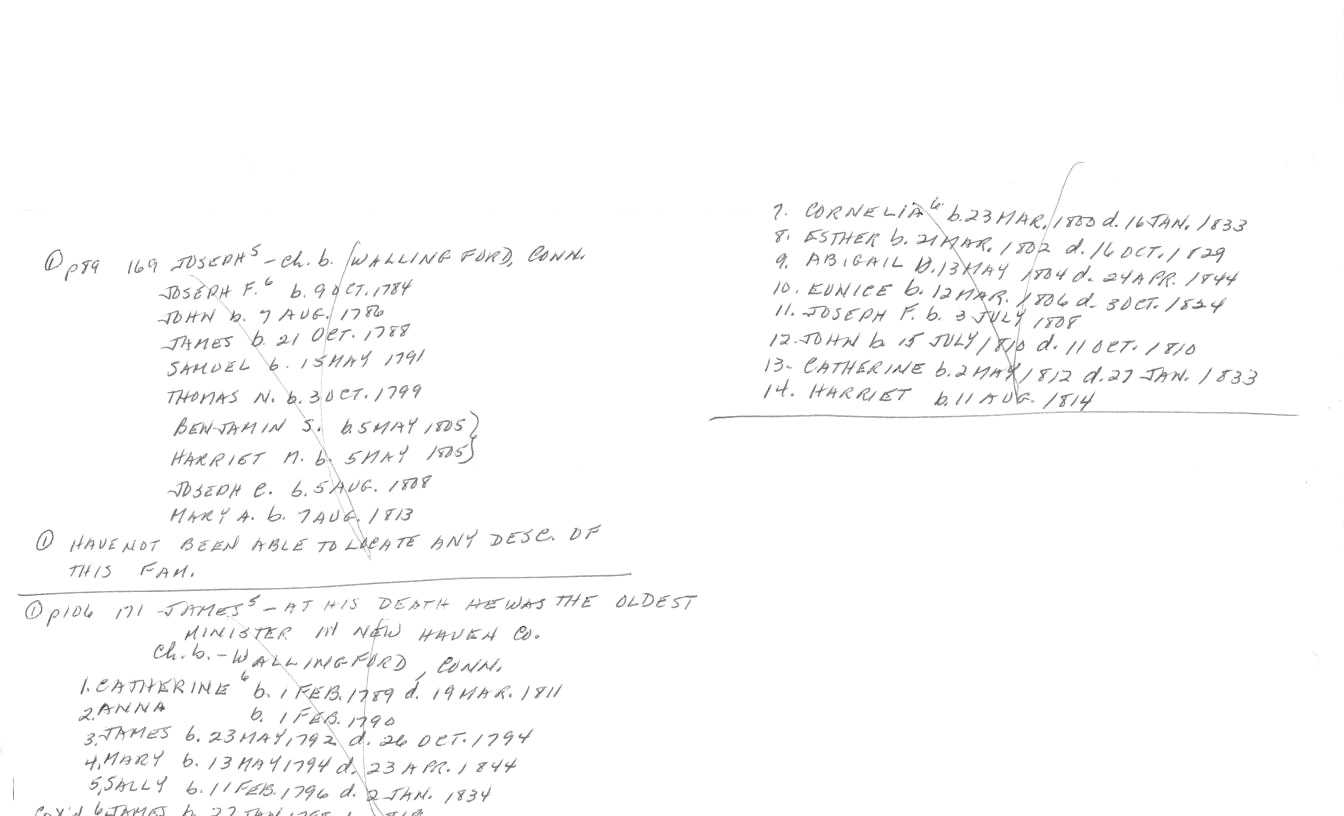 ① p89 169 JOSEPH⁵ - Ch. b. WALLINGFORD, CONN.
JOSEPH F.⁶ b. 9 OCT. 1784
JOHN b. 7 AUG. 1786
JAMES b. 21 OCT. 1788
SAMUEL b. 15 MAY 1791
THOMAS N. b. 3 OCT. 1799
BENJAMIN S. b. 5 MAY 1805}
HARRIET M. b. 5 MAY 1805}
JOSEPH C. b. 5 AUG. 1808
MARY A. b. 7 AUG. 1813
① HAVE NOT BEEN ABLE TO LOCATE ANY DESC. OF
THIS FAM.
① p106 171 JAMES⁵ - AT HIS DEATH HE WAS THE OLDEST
MINISTER IN NEW HAVEN CO.
Ch. b. - WALLINGFORD, CONN.
1. CATHERINE⁶ b. 1 FEB. 1789 d. 19 MAR. 1811
2. ANNA b. 1 FEB. 1790
3. JAMES b. 23 MAY, 1792 d. 26 OCT. 1794
4. MARY b. 13 MAY 1794 d. 23 APR. 1844
5. SALLY b. 11 FEB. 1796 d. 2 JAN. 1834
6. JAMES b. 27 JAN
7. CORNELIA⁶ b. 23 MAR. 1800 d. 16 JAN. 1833
8. ESTHER b. 21 MAR. 1802 d. 16 OCT. 1829
9. ABIGAIL b. 13 MAY 1804 d. 24 APR. 1844
10. EUNICE b. 12 MAR. 1806 d. 3 OCT. 1824
11. JOSEPH F. b. 3 JULY 1808
12. JOHN b. 15 JULY 1810 d. 11 OCT. 1810
13 - CATHERINE b. 2 MAY 1812 d. 27 JAN. 1833
14. HARRIET b. 11 AUG. 1814